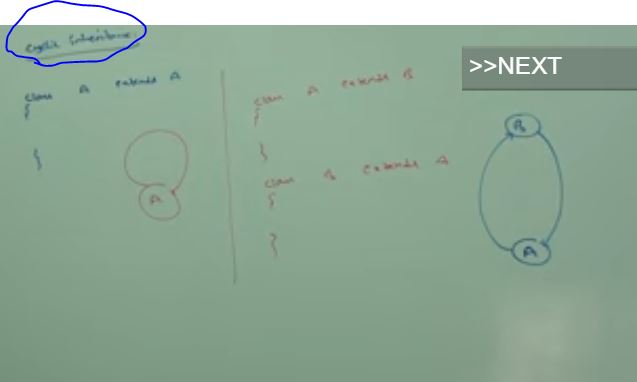 Cyclic Inheritance
>>NEXT
class A extends A
{
}
A
class A extends B
{
}
class B extends A
{
}
B
A